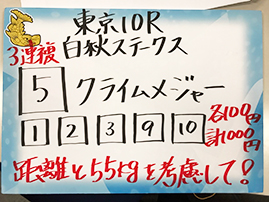 東京10R
3連複
白秋ステークス
5 クライムメジャー
1 2 3 9 10
各100円
計1000円
距離と55kgを考慮して!